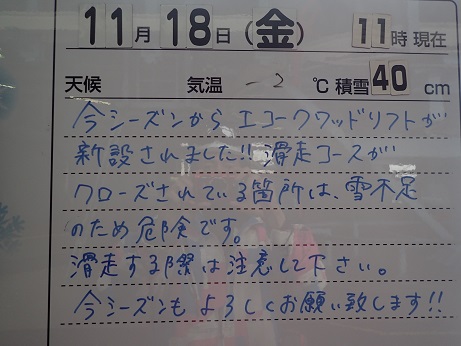 11月18日(金) 11時現在
天候 気温 -2 ℃ 積雪 40 cm
今シーズンから エコークワッドリフトが
新設されました!! 滑走コースが
クローズされている箇所は、雪不足
のため危険です。
滑走する際は注意して下さい。
今シーズンも よろしくお願い致します!!